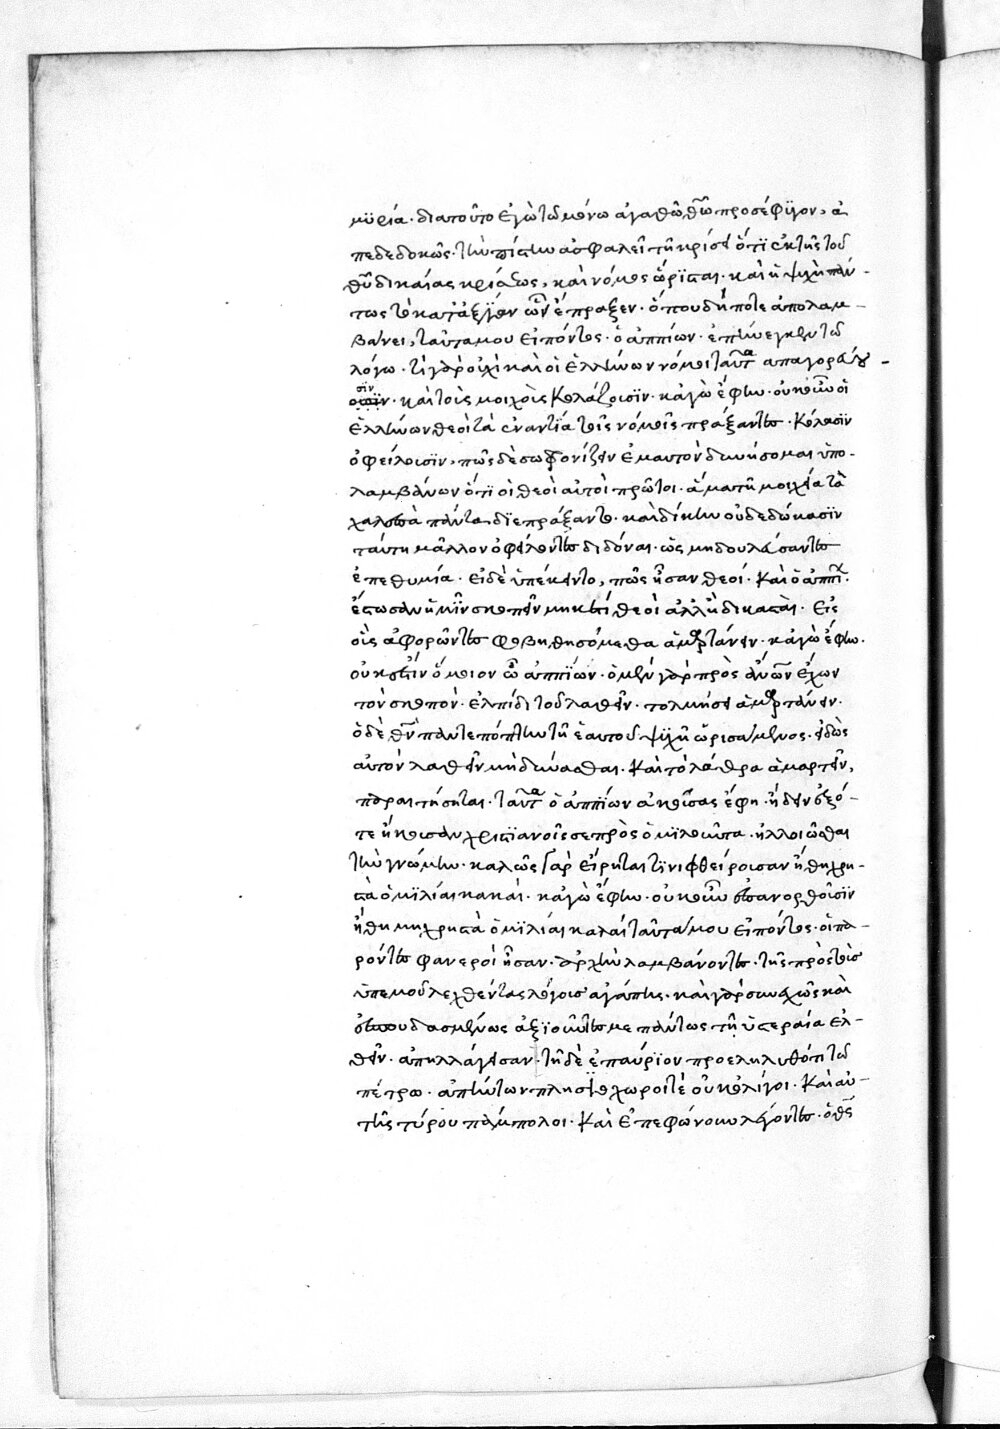 μϋρία · διατοῦτο ἐγὼ τῶ μόνω ἀγαθῶ θῶ προσέφϋγον, ἀ
πεδεδοκῶς · τὴν πίστιν ἀσφαλεῖ τῆ κρίσει ὅτϊ ἐκ τῆς τοῦ
θῦ δικαίας κρίσεως, καὶ νόμος ὥρϊσται · καὶ ἡ ψϋχὴ πάν-
τως τὸ κατἀξΐαν ὧν ἔπραξεν · ὁπουδήποτε ἀπολαμ-
βάνει, ταῦτα μου εἰπόντος · ὁ ἀππίων · ἐπήνεγκεν τῶ
λόγω · τί γὰρ οὐχὶ καὶ οἱ ἑλλήνων νόμοι ταῦτα ἀπαγορεύου-
σιν · καὶ τοὺς μοιχοὺς κολάζουσϊν · κἀγὼ ἔφην · οὐκοῦν οἱ
ἑλλήνων θεοὶ τὰ ἐναντία τοῖς νόμοις πράξαντες · κόλασϊν
ὀφείλουσϊν, πῶς δὲ σωφρονίζειν ἐμαυτὸν δυνήσομαι ὑπο-
λαμβάνων ὅτϊ οἱ θεοὶ αὐτοὶ πρῶτοι · ἅμα τῆ μοιχεία τὰ
χαλεπὰ πάντα διεπράξαντο · καὶ δίκην οὐ δεδώκασϊν
ταύτη μᾶλλον ὀφείλοντες διδόναι · ὡς μὴ δουλεύσαντες
ἐπεθυμία · εἰ δὲ ὑπέκειντο, πῶς ἦσαν θεοί · καὶ ὁ ἀππί ·
ἔστωσαν ἡμῖν σκοπεῖν μηκέτι θεοὶ ἀλλὴ δικασταὶ · εἰς
οὓς ἀφορῶντες φοβηθησόμεθα ἁμαρτάνειν · κἀγὼ ἔφην ·
οὐκ ἔστιν ὅμοιον ὦ ἀππίων · ὁ μὲν γὰρ πρὸς ἄνων ἔχων
τὸν σκοπόν · ἐλπίδι τοῦ λαθεῖν · τολμήσει ἁμαρτάνειν ·
ὁ δὲ θν παντεπόπτην τῆ ἑαυτοῦ ψϋχῆ ὥρισάμενος · εἰδὼς
αὐτὸν λαθεῖν μὴ δύνασθαι · καὶ τὸ λάθρα ἁμαρτεῖν,
παραιτήσηται · ταῦτα ὁ ἀππίων ἀκούσας ἔφη · ἤδειν ἐξ ὅ-
τε ἤκουσαν χριστϊανοῖς σε πρὸς ὁμϊλοῦντα · ἠλλοιῶσθαι
τὴν γνώμην · καλῶς γὰρ εἴρηται τϊνι φθείρουσαν ἤθη χρη-
στὰ ὁμϊλίαι κακαί · κἀγὼ ἔφην · οὐκοῦν ἐπανορθοῦσϊν
ἤθη μὴ χρηστὰ ὁμϊλίαι καλαί ταῦτα μου εἰπόντος · οἱ πα-
ρόντες φανεροί ἦσαν · ἀρχὴν λαμβάνοντες · τῆς πρὸς τοὺς
ὑπ' ἐμοῦ λεχθέντας λόγους ἀγάπης · καὶ γὰρ συνεχῶς καὶ
ἐσπουδασμένως ἀξϊοῦντες με πάντως τῆ ὑστεραία ἐλ-
θεῖν · ἀπηλλάγησαν · τῆ δὲ ἐπαύρϊον προεληλυθότι τῶ
πέτρω · ἀπήντων πλησϊοχώροι τὲ οὐκ ὀλίγοι · καὶ αὐ-
τῆς τύρου πάμπολοι · καὶ ἐπεφώνουν λέγοντες · ὁ θς